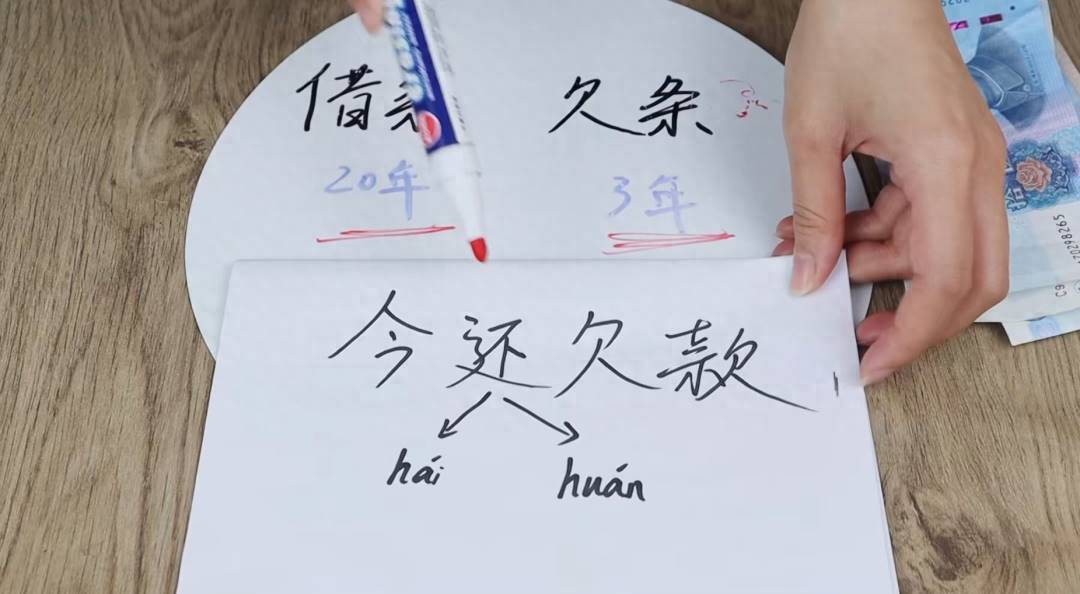 借条 欠条
20年 3年
今还欠款
hái huán
拾
70298265